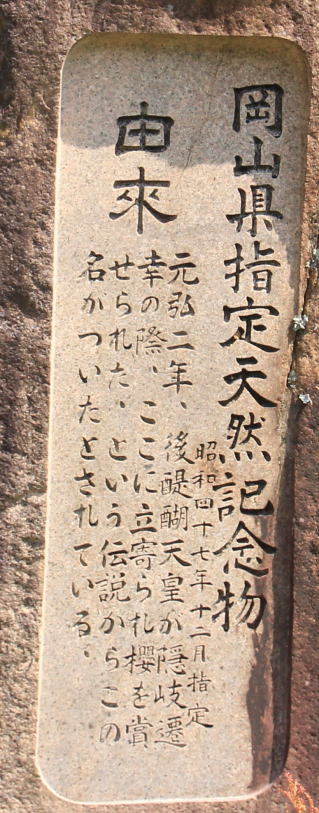 岡山県指定天然記念物
昭和四十七年十二月指定
由來
元弘二年、後醍醐天皇が隠岐遷
幸の際、ここに立寄られ櫻を賞
せられた、という伝説からこの
名がついたとされている、